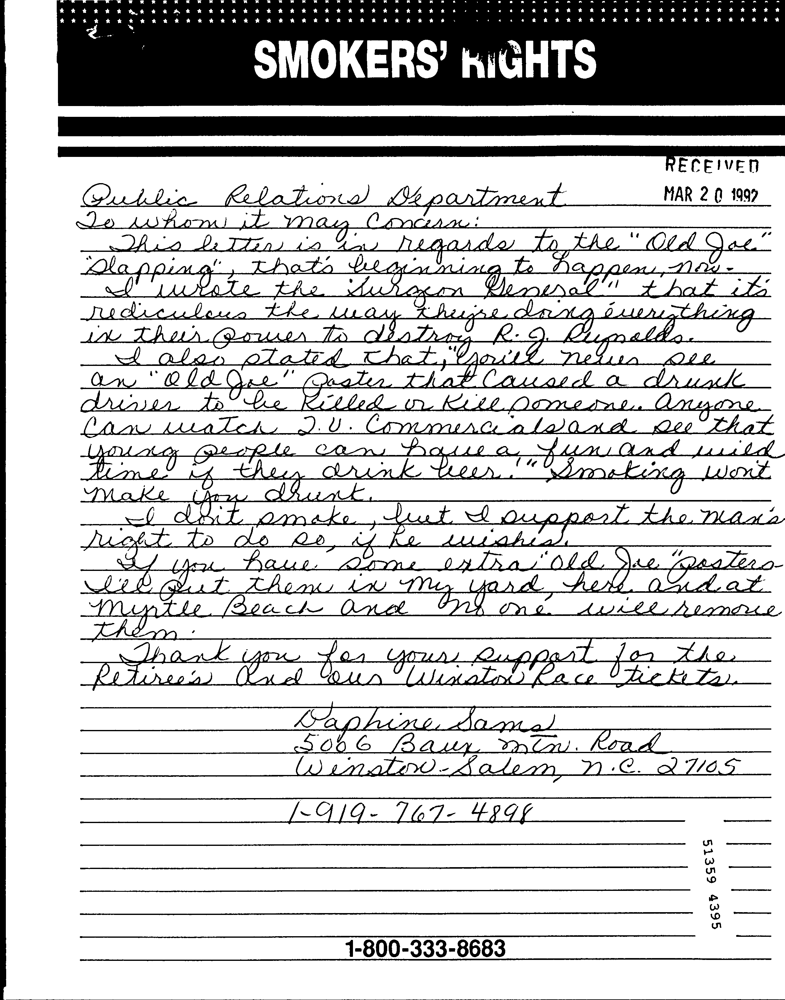 SMOKERS' RIGHTS
RECEIVED
MAR 20 1992
Public Relations Department
To whom it may Concern:
This letter is in regards to the "Old Joe"
"Slapping", that's beginning to happen, now.
I wrote the Surgeon General" that it's
rediculous the way they're doing everything
in their power to destroy R. J. Reynolds.
I also stated that, "you'll never see
an "Old Joe" Poster that Caused a drunk
driver to be Killed or Kill someone. Anyone
Can watch T.V. Commercials and see that
young people can have a fun and wild
time if they drink beer!" Smoking won't
make you drunk.
I don't smoke, but I support the man's
right to do so, if he wishes.
If you have some extra "Old Joe" posters
I'll put them in my yard, here and at
Myrtle Beach and no one will remove
them.
Thank you for your support for the
Retiree's and our Winston Race tickets.
Daphine Sams
5006 Baux Mtn. Road
Winston-Salem, N.C. 27105
1-919-767-4898
51359 4395
1-800-333-8683